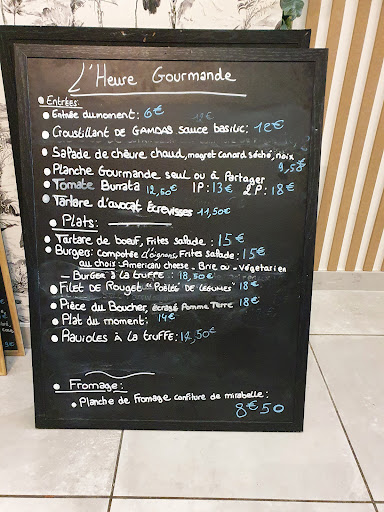 L'Heure Gourmande
Entrées:
Entrée du moment: 6€
Croustillant DE GAMBAS SAUCE BASILIC:
Salade de chèvre chaud, magret canard séché, noix
9,50€
Planche Gourmande seul ou à Partager
1P: 13€ 2P: 18€
Tomate Burrata 12,50€
Tartare d'avocat Écrevisses 11,50€
Plats:
Tartare de bœuf, Frites salade: 15€
Burger: compotée d'oignons, Frites salade: 15€
au choix - American cheese - Brie ou - Végétarien
- Burger à la truffe: 18,50€
Filet de Rouget "Poêlée de légumes" 18€
Pièce du Boucher, écrasé Pomme Terre 18€
Plat du moment: 14€
Ravioles à la truffe: 12,50€
Fromage:
Planche de fromage confiture de mirabelle:
8€50